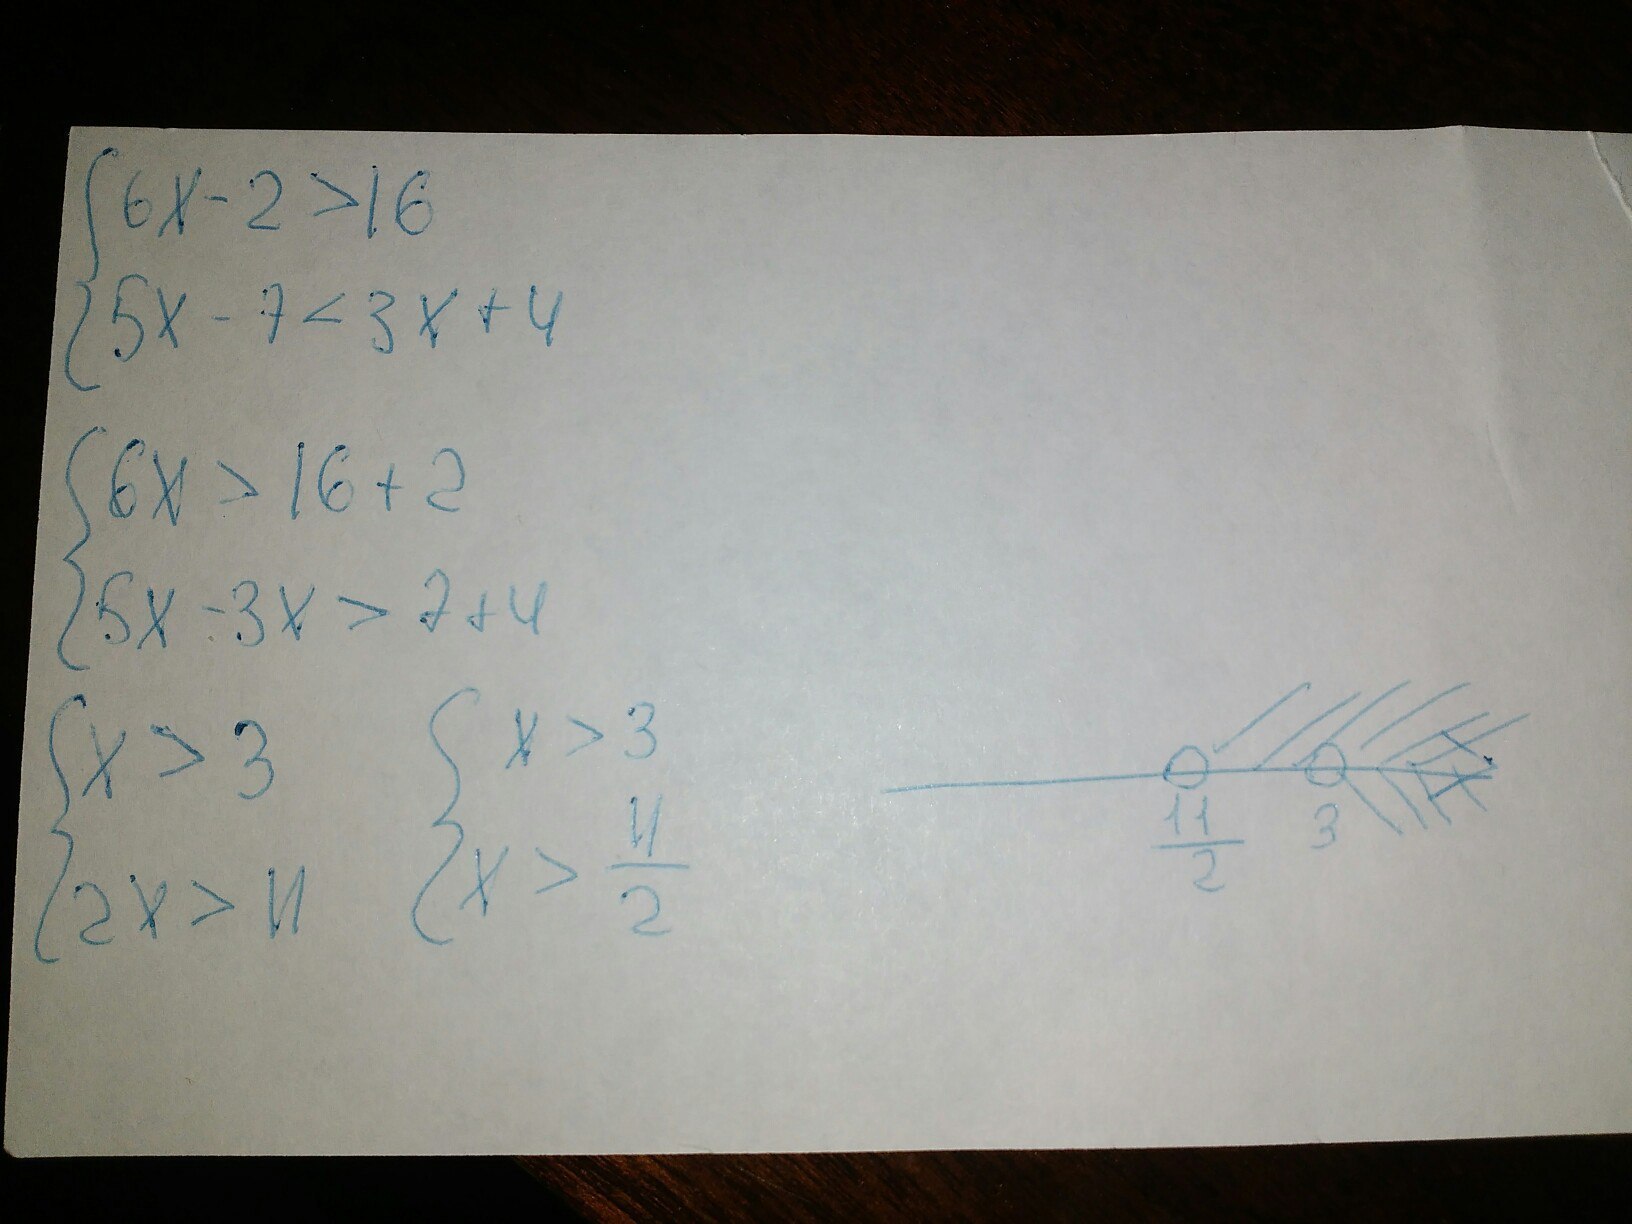 {6x-2>16
{5x-7<3x+4
{6x>16+2
{5x-3x>7+4
{x>3
{2x>11
{x>3
{x>11/2
11/2 3 x